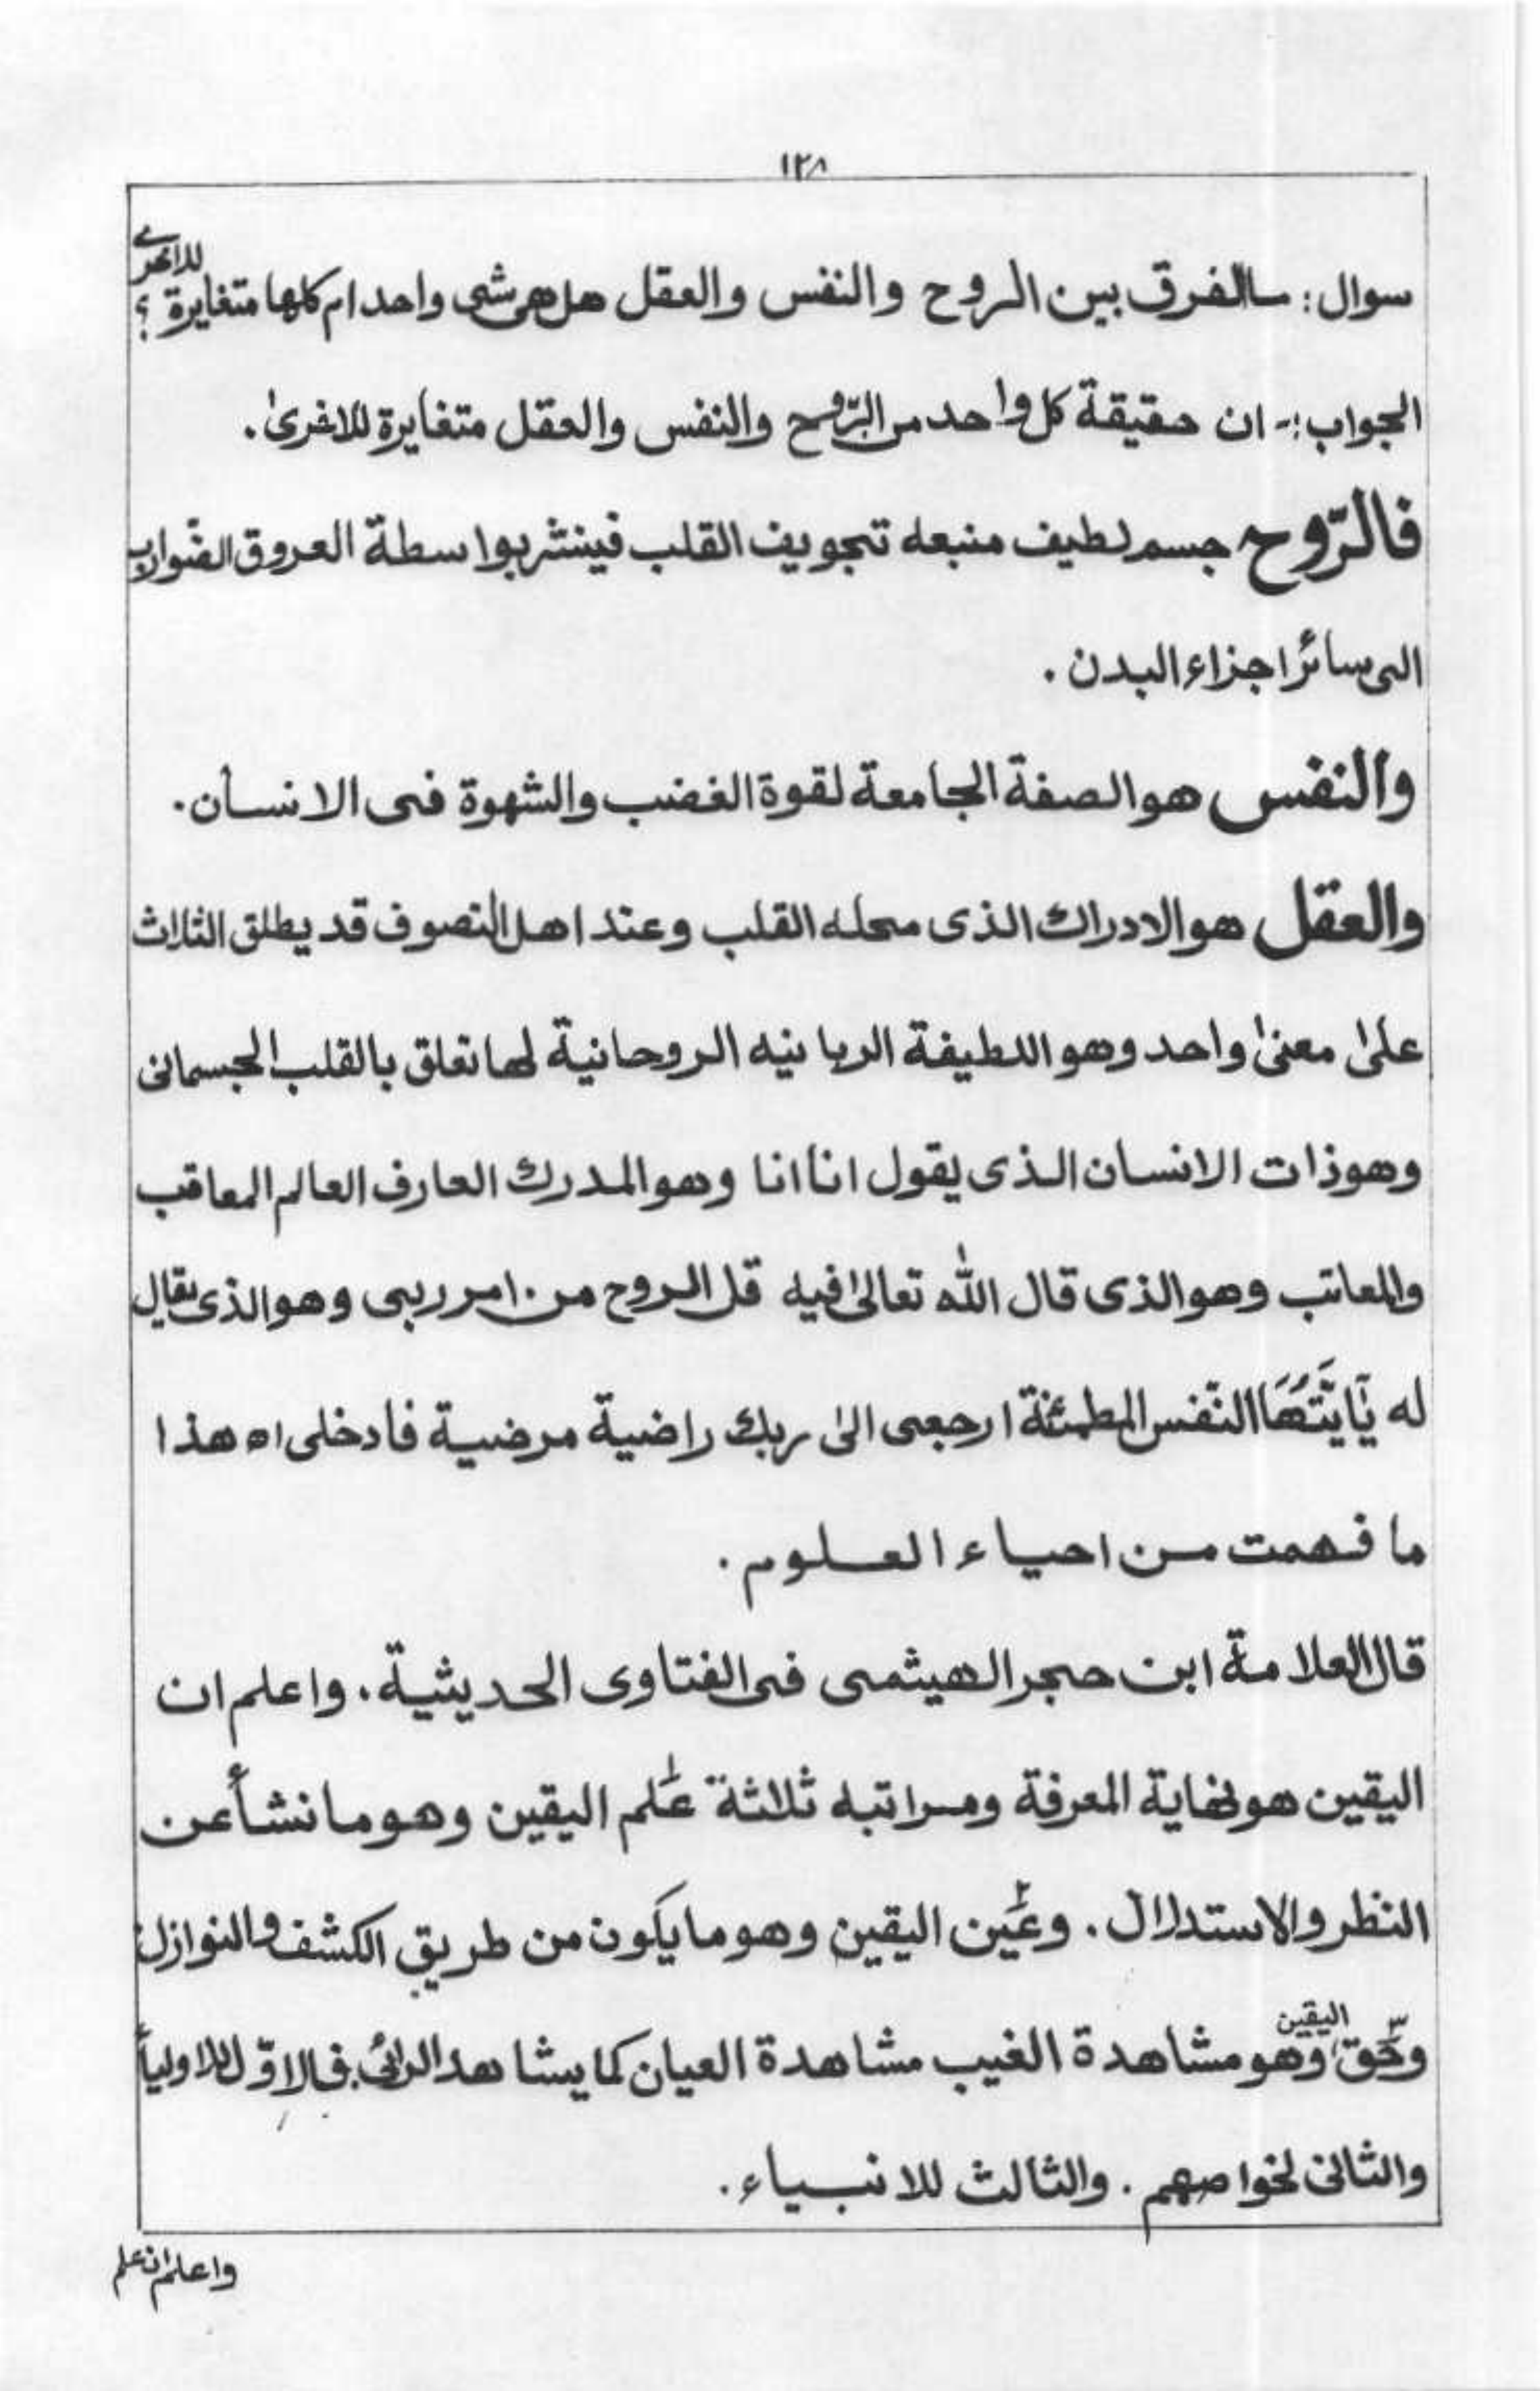 ١٢٨
سوال: ماالفرق بين الروح والنفس والعقل هل هى شى واحد ام كلها متغايرة للاخرى ؟
الجواب:- ان حقيقة كل واحد من الرّوح والنفس والعقل متغايرة للاخرىٰ.
فالرّوح جسم لطيف منبعه تجويف القلب فينشر بواسطة العروق الضّوارب
الى سائر اجزاء البدن .
والنفس هو الصفة الجامعة لقوة الغضب والشهوة فى الانسان.
والعقل هو الادراك الذى محله القلب وعند اهل التصوف قد يطلق الثلاث
علىٰ معنىٰ واحد وهو اللطيفة الربانيه الروحانية لها تعلق بالقلب الجسمانى
وهو ذات الانسان الذى يقول انا انا وهو المدرك العارف العالم المعاقب
والمعاتب وهو الذى قال اللّٰه تعالىٰ فيه قل الروح من امر ربى وهو الذى يقال
له يَٰاَيَّتُهَا النّفس المطمئنة ارجعى الىٰ ربك راضية مرضية فادخلى اه هذا
ما فهمت من احياء العلوم .
قال العلامة ابن حجر الهيثمى فى الفتاوى الحديثية. واعلم ان
اليقين هو نهاية المعرفة ومراتبه ثلاثة ١ علم اليقين وهو ما نشأ عن
النظر والاستدلال . ٢ وعين اليقين وهو ما يكون من طريق الكشف والنوازل
٣ وحق اليقين وهو مشاهدة الغيب مشاهدة العيان كما يشاهد الرائى. فالاوّل للاولياء
والثانى لخواصهم . والثالث للانبياء .
واعلم ان علم